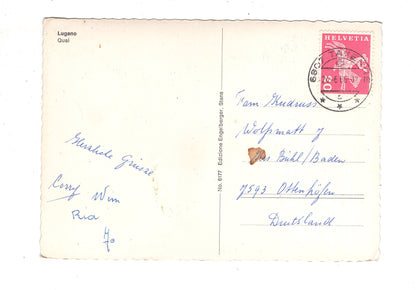 Lugano
Quai
Herzliche Grüsse
Wim
Ria
Jo
No. 6177 Edizione Engelberger, Stans
HELVETIA
Fam
Wolfsmatt 7
Bühl/Baden
7593 Ottenhöfen
Deutsland